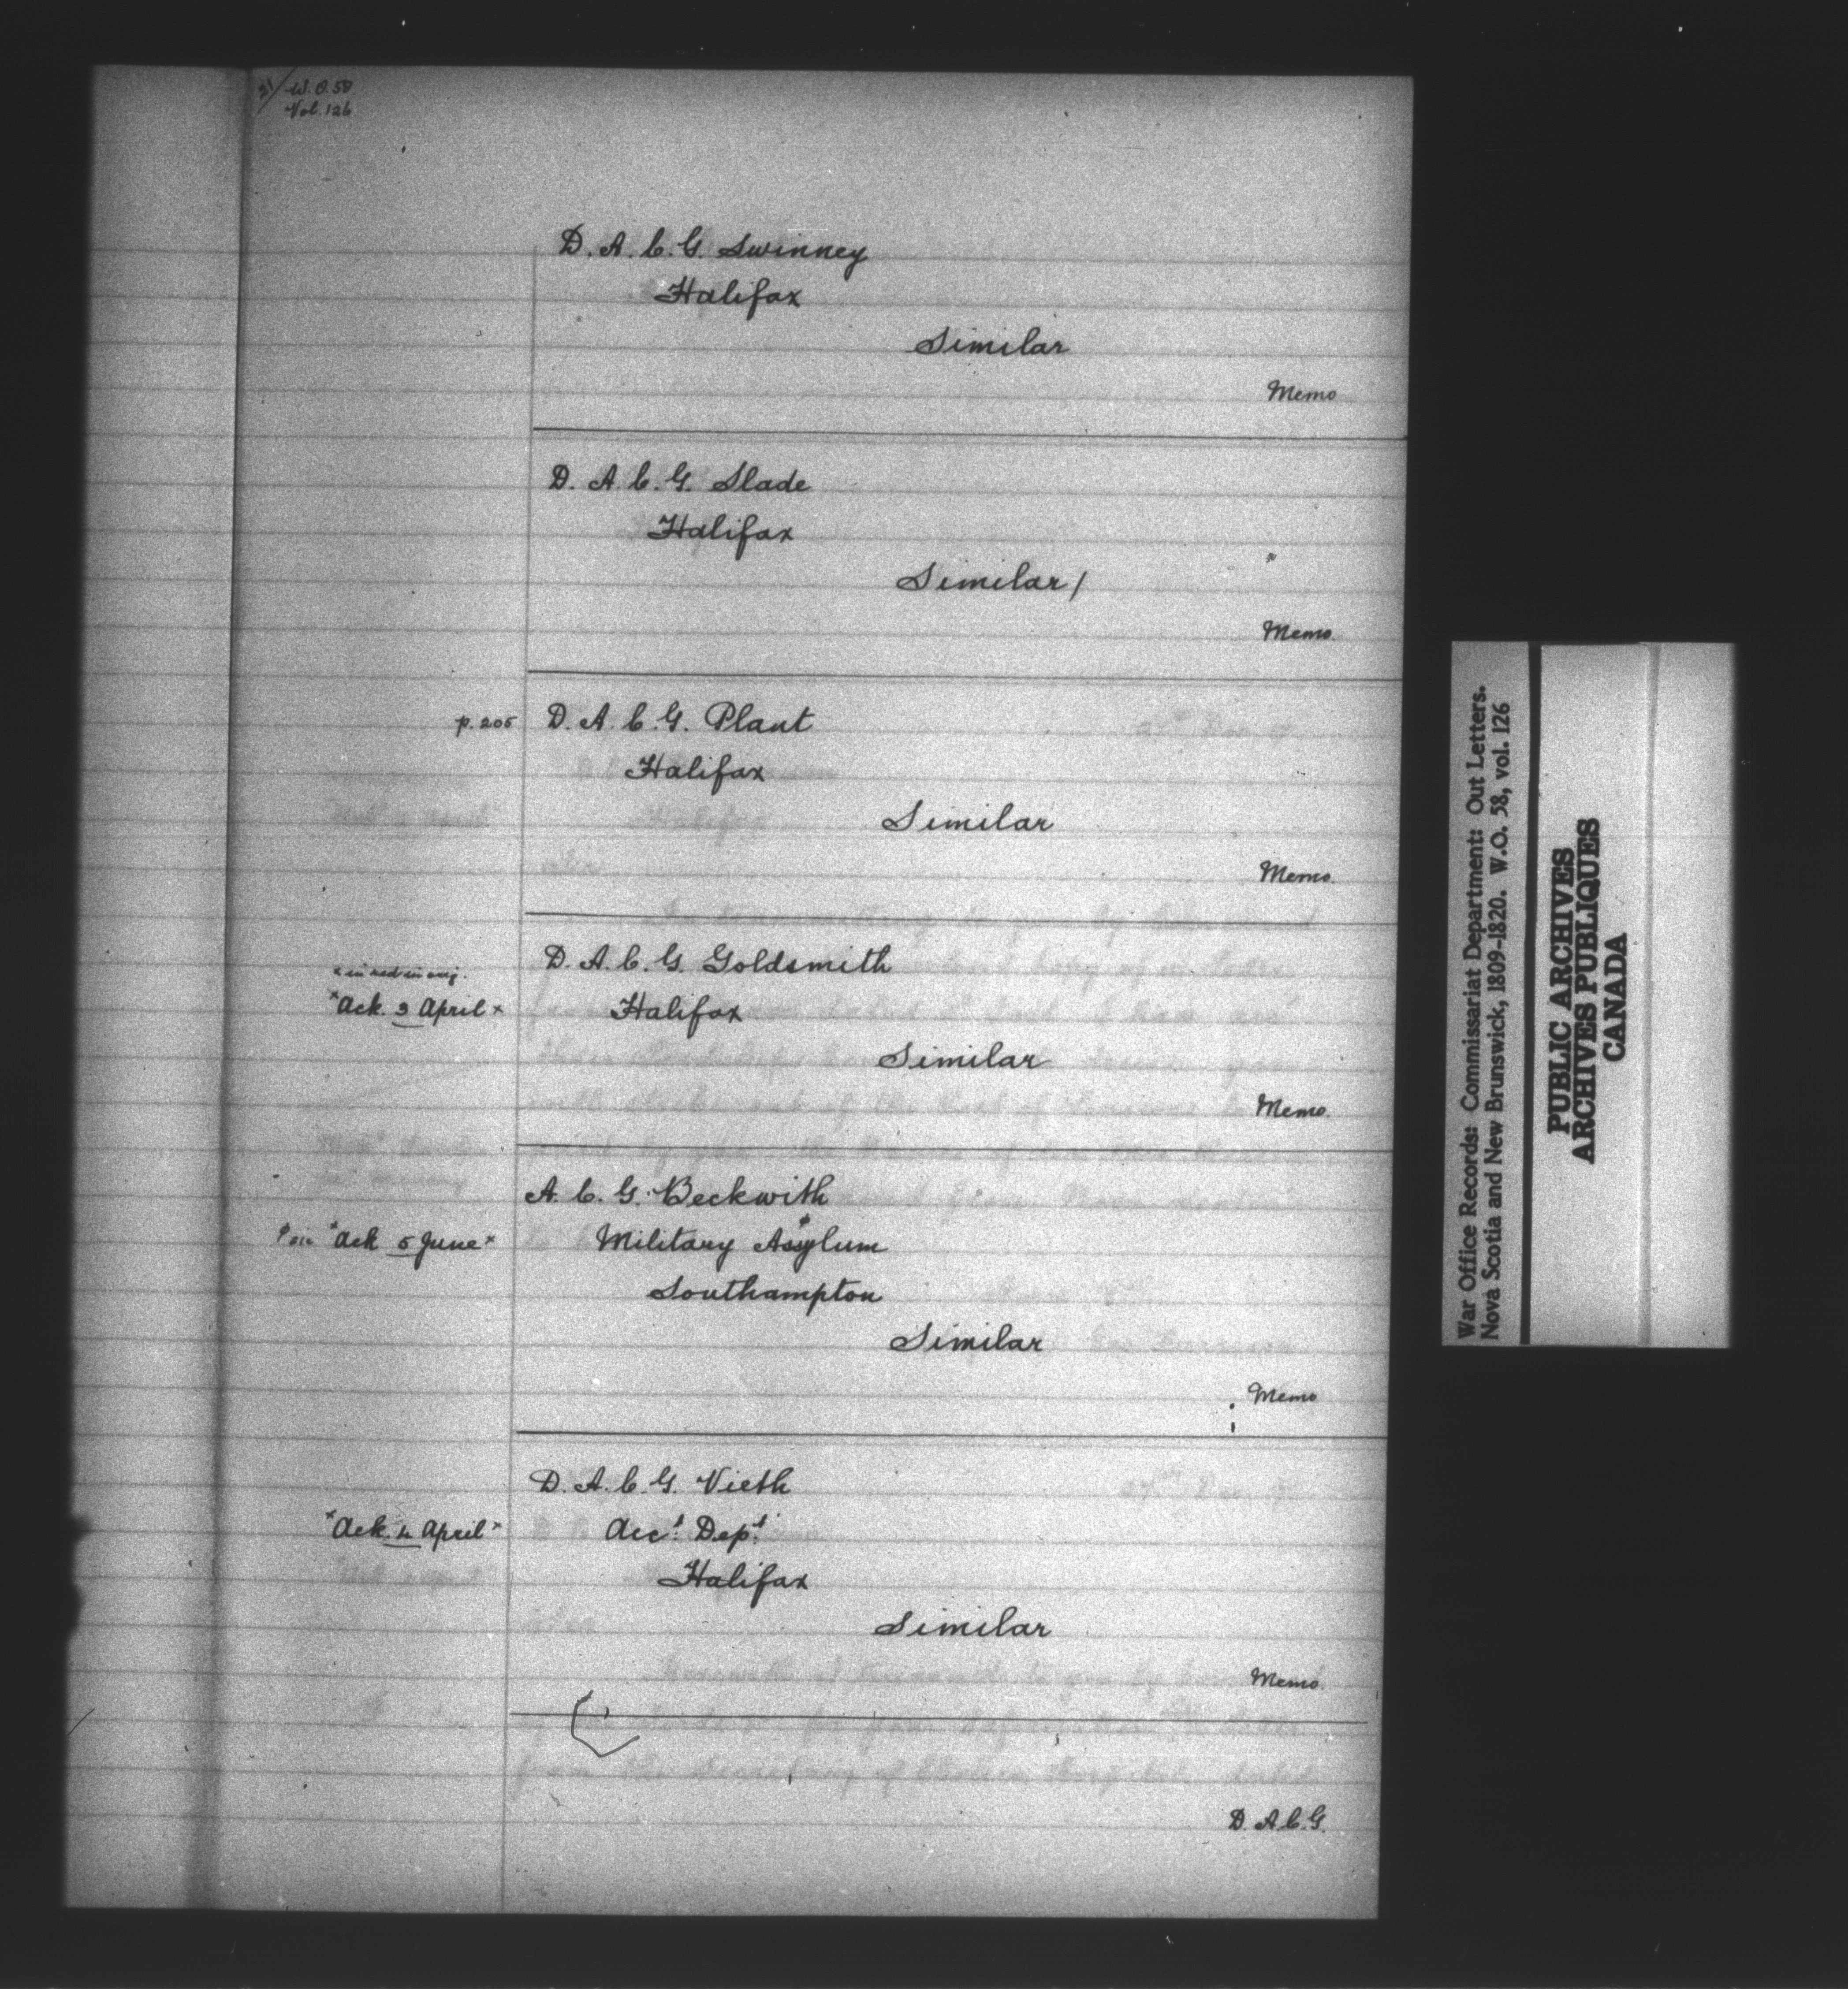 W.O. 58
Vol. 126
D. A. C. G. Swinney
Halifax
Similar
Memo
D. A. C. G. Slade
Halifax
Similar /
Memo.
p. 205 D. A. C. G. Plant
Halifax
Similar
Memo.
D. A. C. G. Goldsmith
x in red in orig.
x Ack. 3 April x Halifax
Similar
Memo.
A. C. G. Beckwith
sic x Ack 5 June x Military Assylum
Southampton
Similar
Memo
D. A. C. G. Vieth
x Ack. 4 April x Acct. Dept.
Halifax
Similar
Memo.
D. A. C. G.
War Office Records: Commissariat Department: Out Letters.
Nova Scotia and New Brunswick, 1809-1820. W.O. 58, vol. 126
PUBLIC ARCHIVES
ARCHIVES PUBLIQUES
CANADA